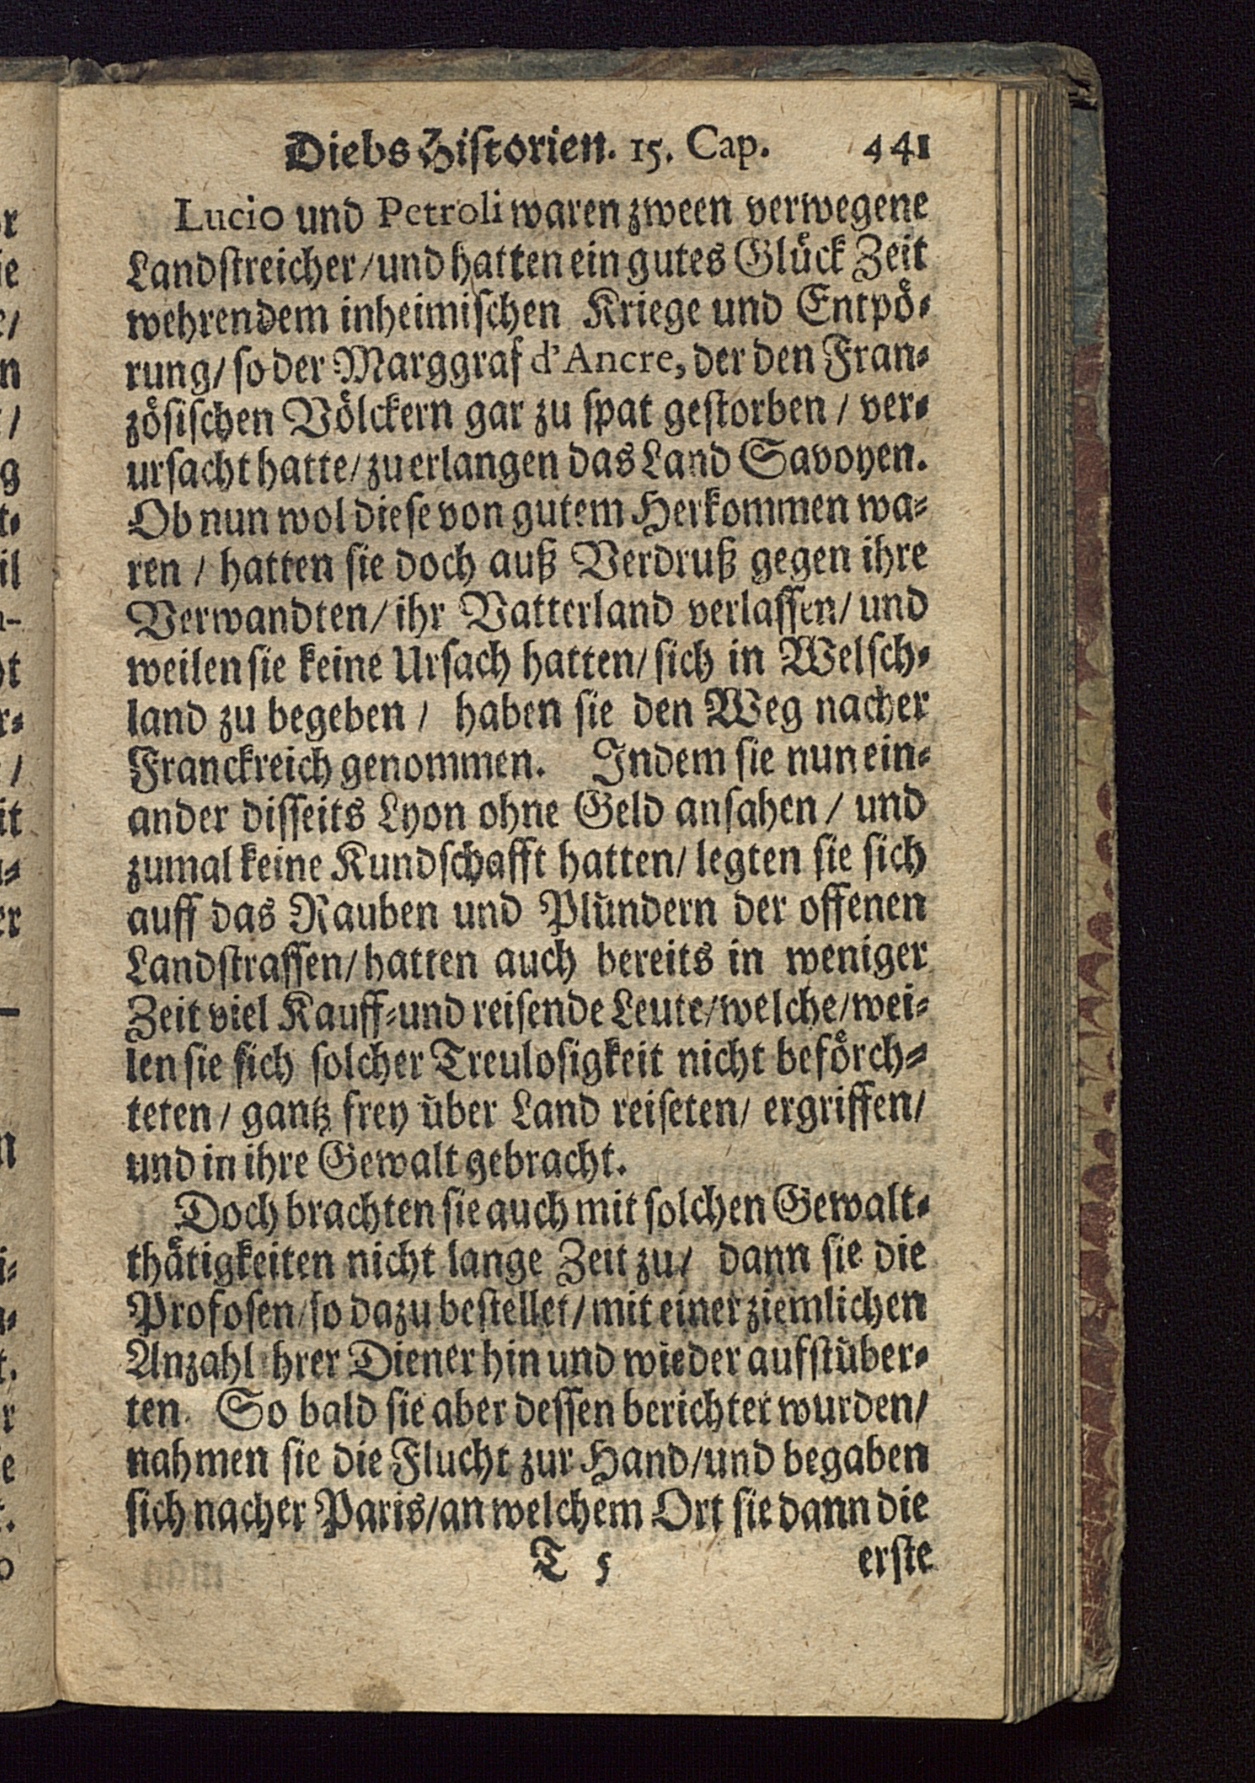 Diebs Historien. 15. Cap. 441
Lucio und Petroli waren zween verwegene
Landstreicher/und hatten ein gutes Glück Zeit
wehrendem inheimischen Kriege und Entpö-
rung/ so der Marggraf d'Ancre, der den Fran-
zösischen Völckern gar zu spat gestorben / ver-
ursacht hatte/zu erlangen das Land Savoyen.
Ob nun wol diese von gutem Herkommen wa-
ren / hatten sie doch auß Verdruß gegen ihre
Verwandten/ihr Vatterland verlassen/ und
weilen sie keine Ursach hatten/ sich in Welsch-
land zu begeben / haben sie den Weg nacher
Franckreich genommen. Indem sie nun ein-
ander disseits Lyon ohne Geld ansahen / und
zumal keine Kundschafft hatten/ legten sie sich
auff das Rauben und Plündern der offenen
Landstrassen/hatten auch bereits in weniger
Zeit viel Kauff-und reisende Leute/welche/wei-
len sie sich solcher Treulosigkeit nicht beförch-
teten / gantz frey über Land reiseten/ ergriffen/
und in ihre Gewalt gebracht.
Doch brachten sie auch mit solchen Gewalt-
thätigkeiten nicht lange Zeit zu/ dann sie die
Profosen/so dazu bestellet/mit einer ziemlichen
Anzahl hrer Diener hin und wieder aufstüber-
ten. So bald sie aber dessen berichtet wurden/
nahmen sie die Flucht zur Hand/und begaben
sich nacher Paris/an welchem Ort sie dann die
T 5 erste